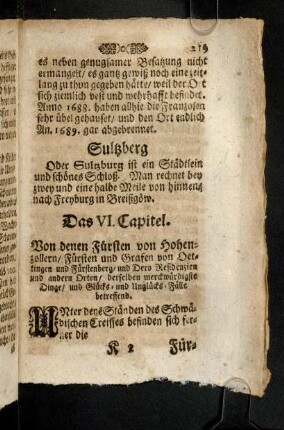 219
es neben genugsamer Besatzung nicht
ermangelt/ es gantz gewiß noch eine zeit-
lang zu thun gegeben hätte/ weil der Ort
sich ziemlich vest und wehrhafft befindet.
Anno 1688. haben allhie die Franzosen
sehr übel gehauset/ und den Ort endlich
An. 1689. gar abgebrennet.
Sultzberg
Oder Sultzburg ist ein Städtlein
und schönes Schloß. Man rechnet bey
zwey und eine halbe Meile von hinnen
nach Freyburg in Breißgöw.
Das VI. Capitel.
Von denen Fürsten von Hohen-
zollern/ Fürsten und Grafen von Oet-
tingen und Fürstenberg/ und Dero Residenzien
und andern Orten/ derselben merckwürdigste
Dinge/ und Glücks- und Unglücks-Fälle
betreffend.
UNter denē Ständen des Schwä-
bischen Creisses befinden sich fer-
ner die
K 2 Für-